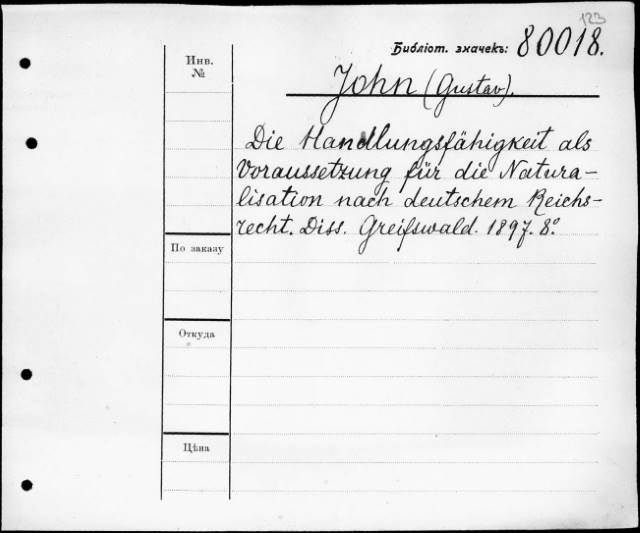 123
Библіот. значекъ: 80018.
Инв.
№
John (Gustav).
Die Handlungsfähigkeit als
Voraussetzung für die Natura-
lisation nach deutschem Reichs-
recht. Diss. Greifswald. 1897. 8.º
По заказу
Откуда
Цѣна